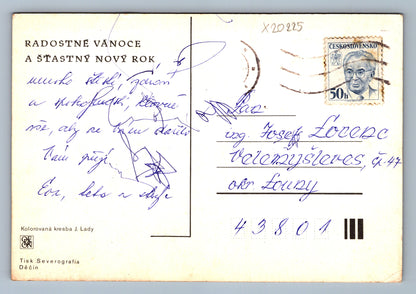 X20225
RADOSTNÉ VÁNOCE
A ŠŤASTNÝ NOVÝ ROK
ČESKOSLOVENSKO
50h
mnoho štěstí, zdraví
a
vše, aby se Vám dařilo
Vám přeje
Eva,
Pan
ing. Josef Lorenc
Volemyšleves, čp. 47
okr. Louny
43801
Kolorovaná kresba J. Lady
Tisk Severografia
Děčín